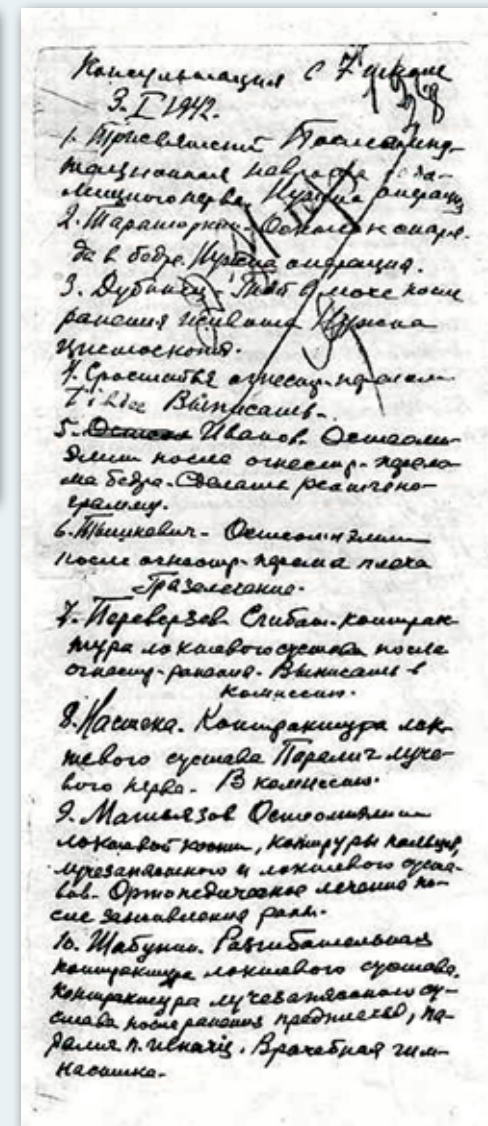 Консультация с 7 школе
3. I 1942.
1. Трисвятский Послеампу-
тационная невросе
лищного нерва. Нужна операция
2. Осколок снаря-
да в бедре. Нужна операция.
3. в моче после
ранения живота Нужна
цистоскопия.
4. огнестр. перелом
Выписать.
5. Иванов. Остеоми-
элит после огнестр. перело-
ма бедра. Сделать рентгено-
грамму.
6. Тышкевич - Остеомиэлит
после огнестр. перелома плеча
Грязелечение.
7. Переверзев Сгибат. контрак-
тура локтевого сустава после
огнестр. ранения. Выписать в
комиссию.
8. Настека. Контрактура лок-
тевого сустава Паралич луче-
вого нерва. В комиссию.
9. Остеомиэлит
локтевой кости, пальцев,
лучезапястного и локтевого суста-
вов. Ортопедическое лечение по-
сле заживления раны.
10. Шабунин. Разгибательная
контрактура локтевого сустава.
Контрактура лучезапястного су-
става после ранения предплечья,
Врачебная гим-
настика.